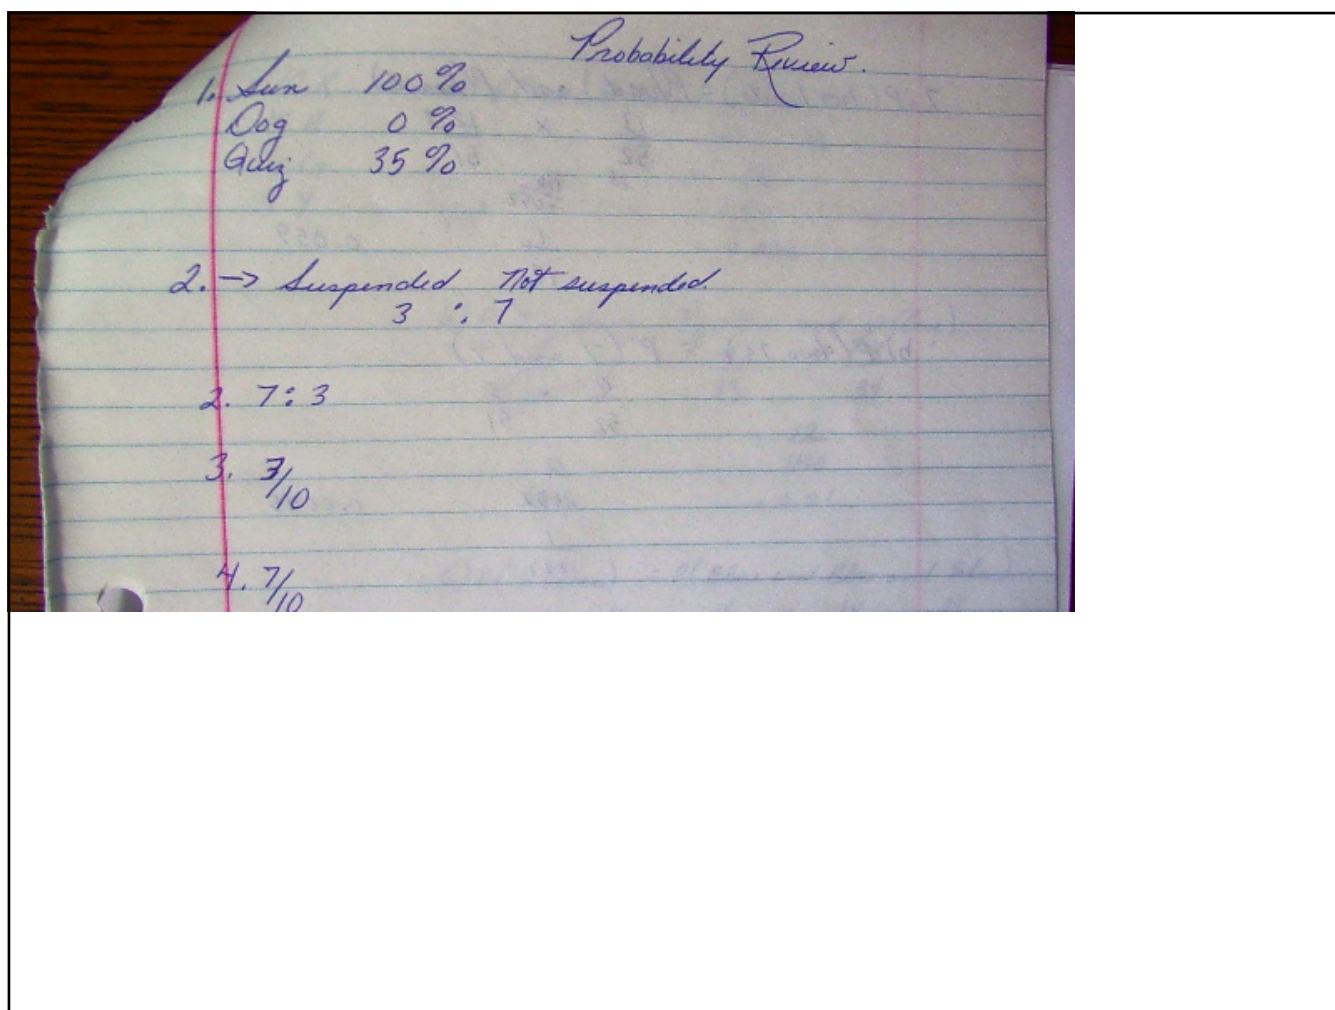 Probability Review.
1. Sun 100%
Dog 0%
Quiz 35%
2. → Suspended Not suspended.
3 : 7
2. 7:3
3. 3/10
4. 7/10